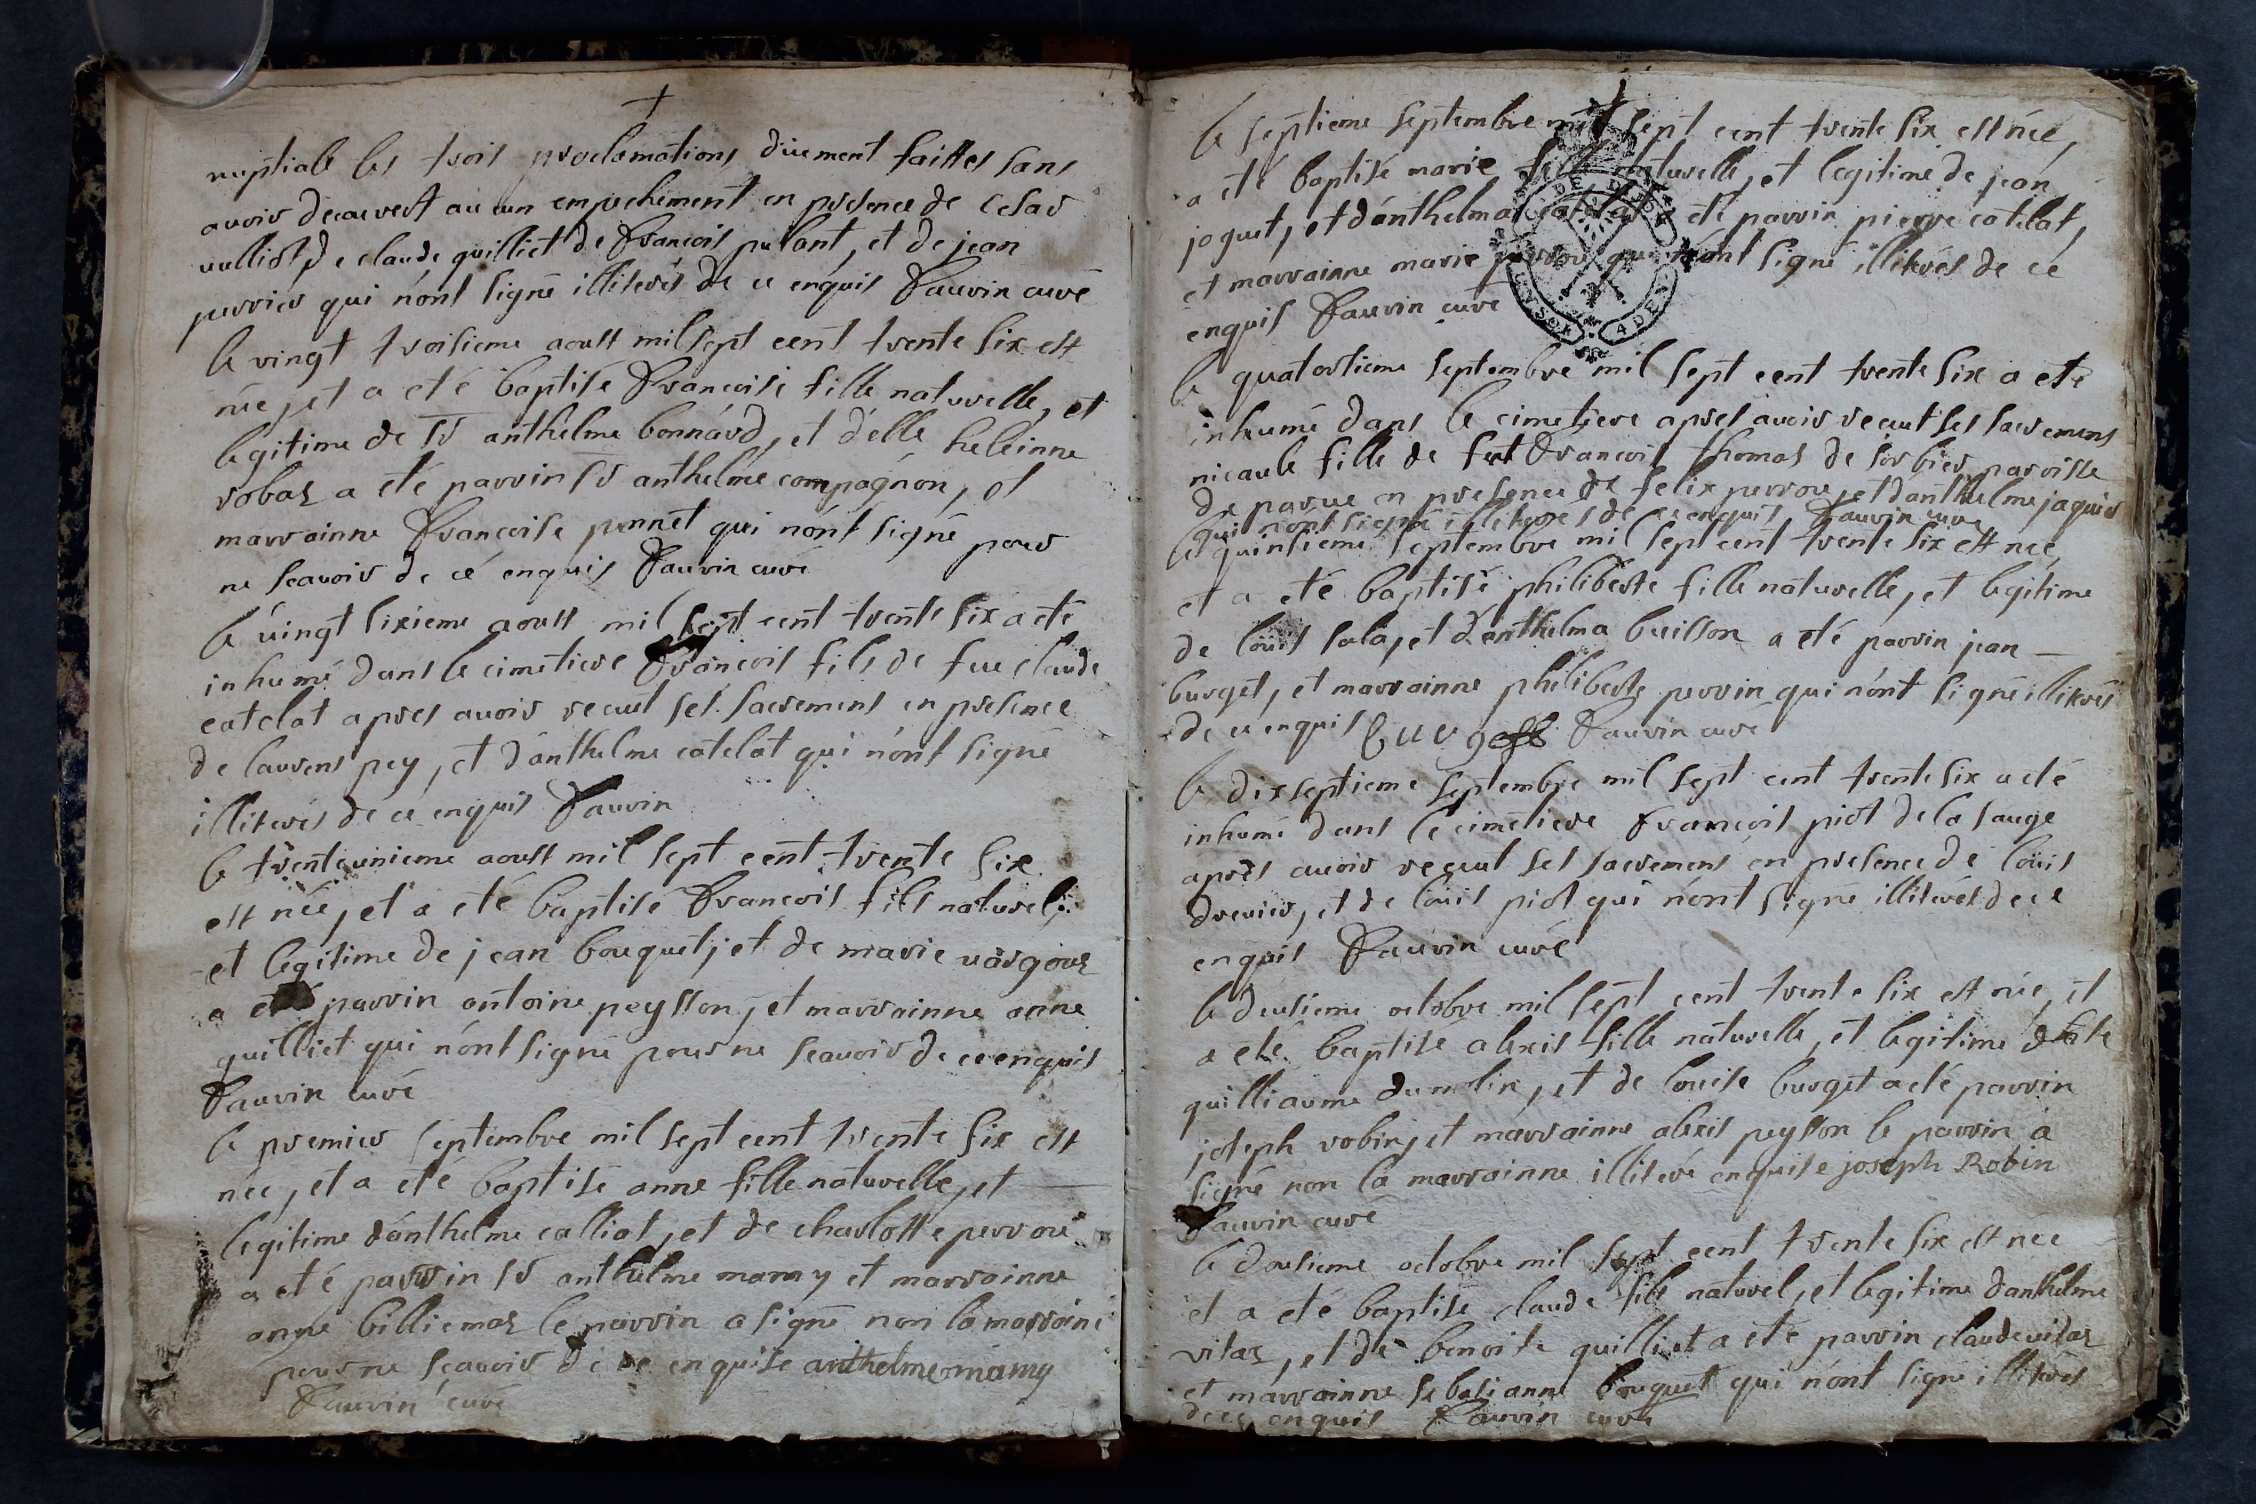 nuptiale les trois proclamations düement faittes sans
avoir decouvert aucun empechement en presence de Cesar
vulliot, de claude quilliet de francois pulant, et de jean
perrier qui n'ont signé illiterés de ce enquis fauvin curé
le vingt troisieme aoust mil sept cent trente six est
née, et a eté baptisé francoise fille naturelle, et
legitime de sr anthelme bonnard, et d'elle heleinne
robaz a eté parrin sr anthelme compagnon, et
marrainne francoise ponnet qui n'ont signé pour
ne scavoir de cé enquis fauvin curé
le vingt sixieme aoust mil sept cent trente six a eté
inhumé dans le cimetiere francois fils de feu claude
catelat apres avoir receut ses sacremens en presence
de laurens pey, et d'anthelme catelat qui n'ont signé
illiterés de cé enquis fauvin
le trenteunieme aoust mil sept cent trente six
est née, et a eté baptisé francois fils naturel,
et legitime de jean bouquet, et de marie vargoz
a eté parrin antoine peysson, et marrainne anne
quilliet qui n'ont signé pour ne scavoir de ce enquis
fauvin curé
le premier septembre mil sept cent trente six est
née, et a eté baptisé anne fille naturelle, et
legitime d'anthelme calliot, et de charlotte perrou
a eté parrin sr anthelme mamy et marrainne
anne billiemaz le parrin a signé non la marrainne
pour ne scavoir de ce enquise anthelme mamy
fauvin curé
le septieme septembre mil sept cent trente six est née,
a eté baptisé marie fille naturelle, et legitime de jean
joguet, et d'anthelma catelat a eté parrin pierre catelat,
et marrainne marie perrou qui n'ont signé illiterés de cé
enquis fauvin curé
le quatorsieme septembre mil sept cent trente six a eté
inhumé dans le cimetiere apres avoir receut ses sacremens
nicaule fille de feut francois thomas de sorbier parroisse
de parve en presence de felix perrou, et d'anthelme jaquir
qui n'ont signé illiterés de ce enquis fauvin curé
le quinsieme septembre mil sept cent trente six est née,
et a eté baptisé philiberte fille naturelle, et legitime
de loüis sala, et d'anthelma buisson a eté parrin jean
burget, et marrainne philiberte perrin qui n'ont signé illiterés
de ce enquis burget fauvin curé
le dixseptieme septembre mil sept cent trente six a eté
inhumé dans le cimetiere francois piot de la sauge
apres avoir receut ses sacremens en presence de loüis
drevier, et de loüis piot qui n'ont signé illiterés de ce
enquis fauvin curé
le deusieme octobre mil sept cent trente six est née, et
a eté baptisé alexis fille naturelle, et legitime de
quilliaume dumolin, et de louise burget a eté parrin
joseph robin, et marrainne alexis peysson le parrin a
signé non la marrainne illiteré enquise joseph Robin
fauvin curé
le dousieme octobre mil sept cent trente six est née
et a eté baptisé claude fils naturel, et legitime d'anthelme
vitaz, et de benoite quilliet a eté parrin claude vitaz
et marrainne sebasianne bouquet qui n'ont signé illiterés
de ce enquis fauvin curé